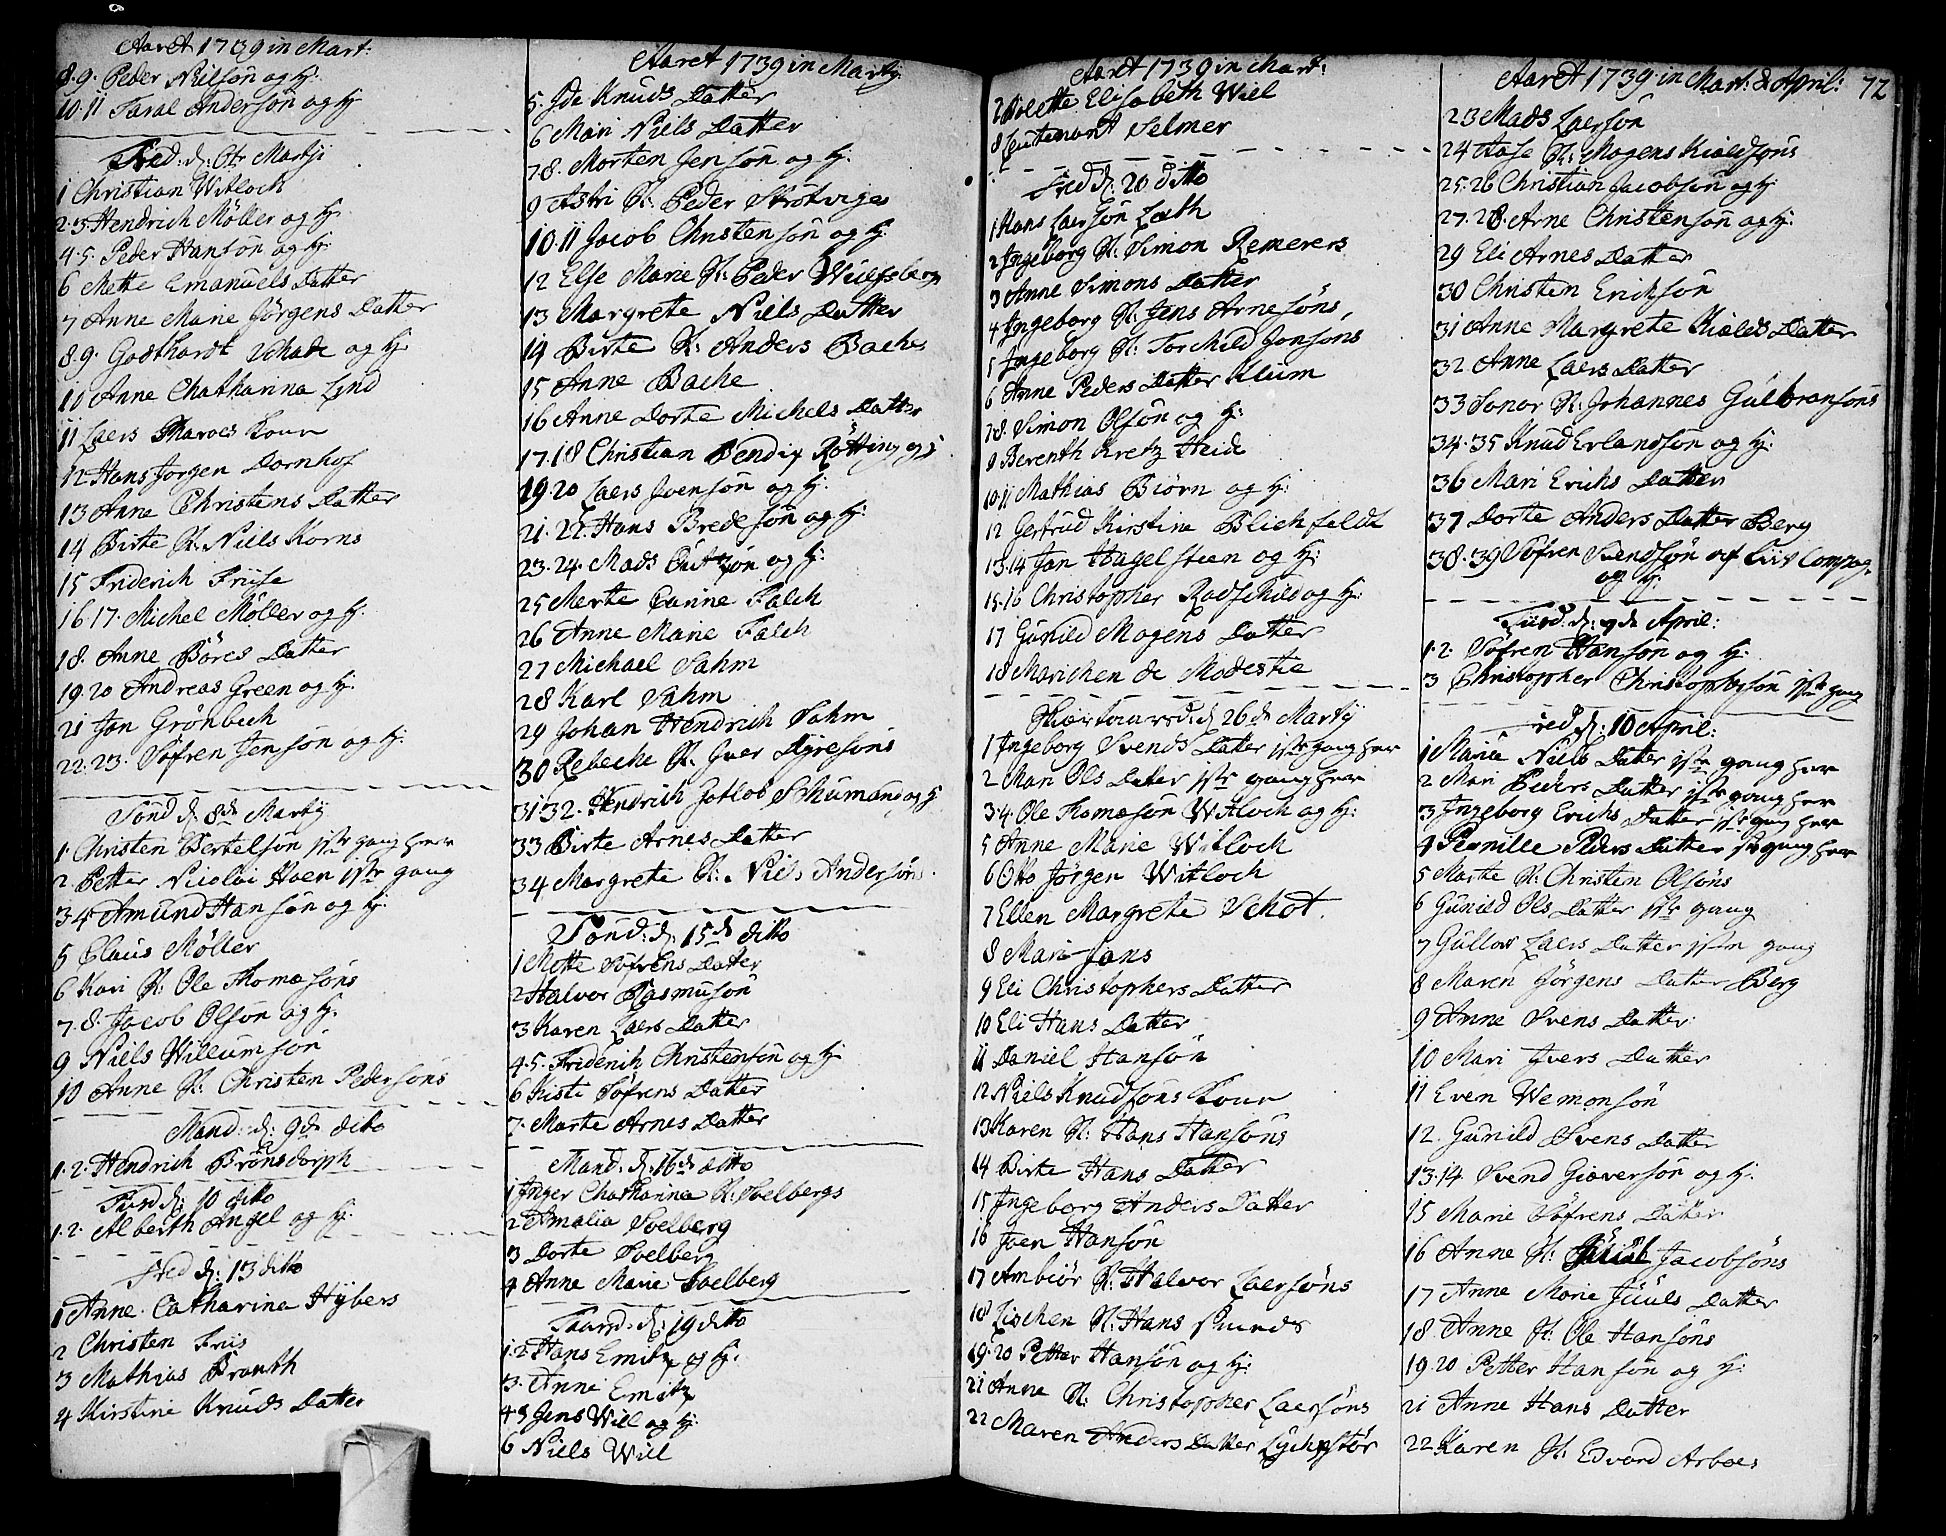 Aaret 1739 in Mart:
8. 9. Peder Nilsøn og H:
10. 11 Taral Andersøn og H
Fred: d: 6te Martji
1 Christian Witloch
2. 3. Hendrich Møller og H:
4. 5. Peder Hansøn og H:
6 Mette Emanuels Datter
7 Anne Marie Jørgens Datter
8. 9. Godthardt Schade og H:
10 Anne Chatharina Lind
11 Laers Maroes Kone
12 Hans Jørgen Dornhof
13 Anne Christens Datter
14 Birte K: Niels Korns
15 Friderich Friise
16 17. Michel Møller og H:
18. Anne Børes Datter
19. 20 Andreas Green og H:
21 Jan Grønbech
22. 23. Søfren Jensøn og H:
Sond d: 8de Martij
1. Christen Bertelsøn 1ste gang her
2. Petter Nicolai Hoen 1ste gang
3 4. Amund Hansøn og H:
5 Claus Møller
6 Kari K: Ole Thomæsøns
7. 8. Jacob Olsøn og H:
9 Niels Willumsøn
10 Anne K: Christen Pedersøns
Mand: d: 9de ditto
1. 2. Hendrich Brønsdorph
Tiisd d: 10 ditto
1. 2. Alberth Angel og H:
Fred d: 13 ditto
1 Anne Catharina Hybers
2 Christen Friis
3 Mathias Branth
4 Kirstine Knuds Datter
Aaret 1739 in Martij
5. Ide Knuds Datter
6 Mari Niels Datter
7 8. Morten Jensøn og H:
9 Astri K: Peder Skrotviges
10. 11 Jacob Christensøn og H:
12 Else Marie K: Peder Wulfsberg
13 Margrete Niels Datter
14 Birte K: Anders Baches
15 Anne Bache
16 Anne Dorte Michels Datter
17. 18 Christian Bendix Røtting og H
19. 20 Laers Ivensøn og H:
21. 22. Hans Bredesøn og H:
23. 24. Mads og H:
25 Merte Carine Falch
26 Anne Marie Falch
27 Michael Sahm
28 Karl Sahm
29 Johan Hendrich Sahm
30 Rebecke K: Iver Dyresøns
31 32. Hendrich Gotlob Schumand og H
33 Birte Arnes Datter
34 Margrete K: Niels Andersøns
Sond: d: 15de ditto
1 Mette Søfrens Datter
2 Halvor Rasmusøn
3 Karen Laers Datter
4. 5. Friderich Christensøn og H:
6 Kisti Søfrens Datter
7. Marte Arnes Datter
Mand: d: 16de ditto
1 Inger Chatharina K: Soelbergs
2 Amalia Soelberg
3 Dorte Soelberg
4 Anne Marie Soelberg
Taarsd: d: 19 ditto
1. 2 Hans Emitz og H:
3. Anne Emitz
4 5 Jens Will og H:
6 Niels Will
Aaret 1739 in Mart:
7 Dolette Elisabeth Will
8 Leutenant Selmer
Fred d: 20 ditto
1 Hans Laersøn Lath
2 Ingeborg K: Simon Remerers
3 Anne Simons Datter
4 Ingeborg K: Jens Arnesøns
5 Ingeborg K: Torchild Jonsøns
6 Anne Peders Datter Klum
7 8. Simon Olsøn og H:
9 Berenth Kretz Heide
10 11 Mathias Biørn og H:
12 Gertrud Kirstina Blichfeldt
13. 14 Jan Hagelsteen og H:
15. 16 Christopher Rodschild og H:
17 Gunild Mogens Datter
18 Marichen de Modestie
Skiærtaarsd: d: 26de Martij
1 Ingeborg Svends Datter 1ste gang her
2 Mari Ols Datter 1ste gang her
3. 4. Ole Thomæsøn Witloch og H:
5 Anne Marie Witloch
6 Otto Jørgen Witloch
7 Ellen Margrete Schot.
8 Mari Jans
9 Eli Christophers Datter
10 Eli Hans Datter
11 Daniel Hansøn
12 Niels Knudsøns Kone
13 Karen K: Hans Hansøns
14 Birte Hans Datter
15 Ingeborg Anders Datter
16 Iven Hansøn
17 Ambiør K: Halvor Laersøns
18 Lischen K: Hans Sunds
19. 20 Petter Hansøn og H:
21 Anne K: Christopher Laersøns
22 Maren Anders Datter
Aaret 1739 in Mart: & April: 72
23 Mads Laersøn
24 Aase K: Mogens Kioldsøns
25. 26 Christian Jacobsøn og H:
27. 28. Arne Christensøn og H:
29 Eli Arnes Datter
30 Christen Ericksøn
31 Anne Margrete Kiølds Datter
32 Anne Laers Datter
33 Sonor K: Johannes Gulbransøns
34. 35 Knud Erlandsøn og H:
36 Mari Erichs Datter
37 Dorte Anders Datter Berg
38. 39 Søfren Svendsøn af Liv Compag:
og H:
Tiisd. d: 7de April:
1. 2. Søfren Hansøn og H:
3 Christopher Christophersøn 1ste gang
Fred d: 10 April:
1 Maria Niels Datter 1ste gang her
2 Mari Peders Datter 1ste gang her
3 Ingeborg Erichs Datter 1ste gang her
4 Pernille Peders Datter 1ste gang her
5 Marte K: Christen Olsøns
6 Gunild Ols Datter 1ste gang
7 Gullov Laers Datter 1ste gang
8 Maren Jørgens Datter Berg
9 Anne Svens Datter
10 Mari Ivers Datter
11 Even Wemonsøn
12. Gunild Svens Datter
13. 14. Svend Giæversøn og H:
15 Marie Søfrens Datter
16 Anne K: Jacobsøns
17 Anne Marie Juuls Datter
18. Anne K: Ole Hansøns
19. 20 Petter Hansøn og H:
21 Anne Hans Datter
22 Karen K: Edvard Arboes